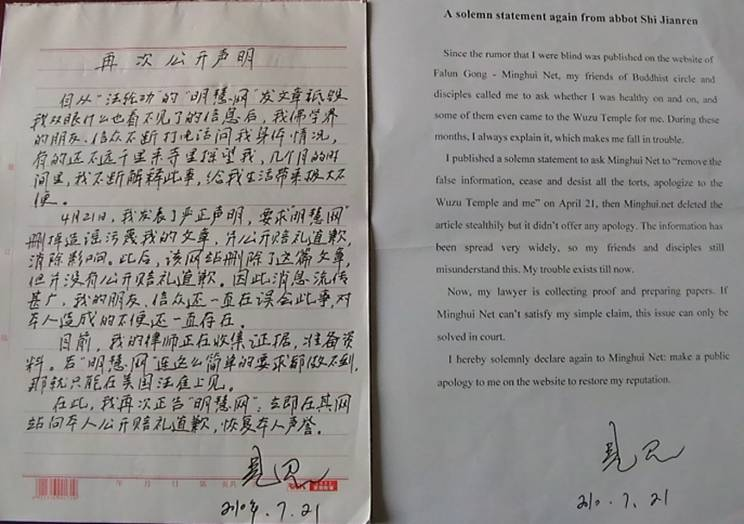 再次公开声明
自从“法轮功”的“明慧网”发文章诋毁
我双眼什么也看不见了的信息后，我佛学界
的朋友、信众不断打电话问我身体情况，
有的还不远千里来寺里探望我，几个月的时
间里，我不断解释此事，给我生活带来极大不
便。
4月21日，我发表了严正声明，要求“明慧网”
删掉造谣污蔑我的文章，并公开赔礼道歉，
消除影响。此后，该网站删除了这篇文章，
但并没有公开赔礼道歉。因此消息流传
甚广，我的朋友、信众还一直在误会此事，对
本人造成的不便还一直存在。
目前，我的律师正在收集证据，准备资
料。若“明慧网”连这么简单的要求都做不到，
那就只能在美国法庭上见。
在此，我再次正告“明慧网”：立即在其网
站向本人公开赔礼道歉，恢复本人声誉。
见忍
7.21
年 月 日 第 页共
A solemn statement again from abbot Shi Jianren
Since the rumor that I were blind was published on the website of
Falun Gong - Minghui Net, my friends of Buddhist circle and
disciples called me to ask whether I was healthy on and on, and
some of them even came to the Wuzu Temple for me. During these
months, I always explain it, which makes me fall in trouble.
I published a solemn statement to ask Minghui Net to “remove the
false information, cease and desist all the torts, apologize to the
Wuzu Temple and me” on April 21, then Minghui.net deleted the
article stealthily but it didn't offer any apology. The information has
been spread very widely, so my friends and disciples still
misunderstand this. My trouble exists till now.
Now, my lawyer is collecting proof and preparing papers. If
Minghui Net can't satisfy my simple claim, this issue can only be
solved in court.
I hereby solemnly declare again to Minghui Net: make a public
apology to me on the website to restore my reputation.
见忍
7.21